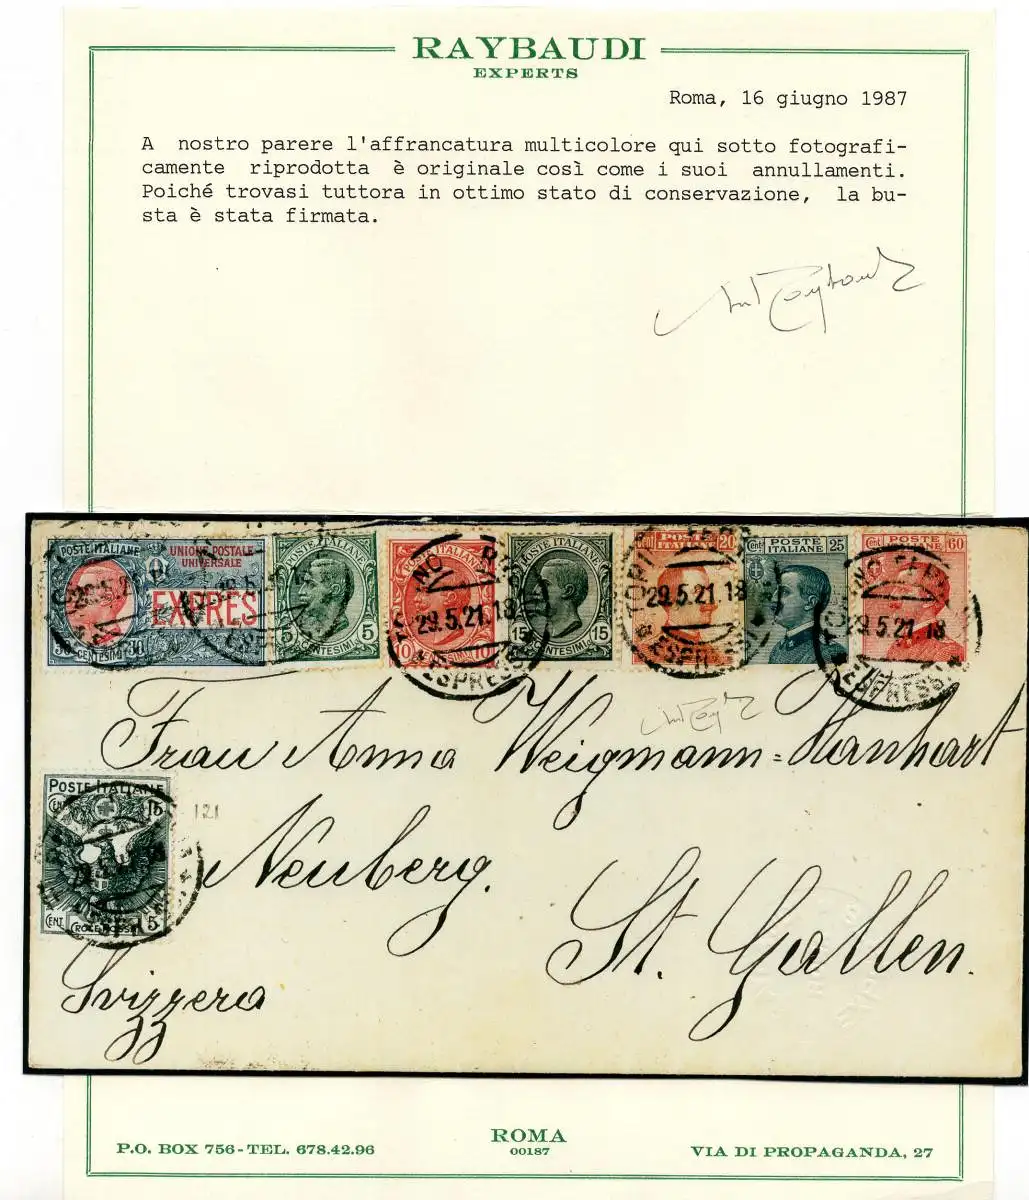 RAYBAUDI
EXPERTS
Roma, 16 giugno 1987
A nostro parere l'affrancatura multicolore qui sotto fotografi-
camente riprodotta è originale così come i suoi annullamenti.
Poiché trovasi tuttora in ottimo stato di conservazione, la bu-
sta è stata firmata.
POSTE ITALIANE UNIONE POSTALE
UNIVERSALE
EXPRES
30 CENTESIMI 30
POSTE ITALIANE
5 CENTESIMI 5
POSTE ITALIANE
10 CENTESIMI 10
29.5.21.18
ESPRESSI
POSTE ITALIANE
15 CENTESIMI 15
POSTE ITALIANE
20
29.5.21.18
Cent 25
POSTE
ITALIANE
Cent 60
29.5.21.18
ESPRESSI
Frau Anna Weigmann=Hanhart
Neuberg.
St. Gallen.
Svizzera
POSTE ITALIANE
CENT 15
CENT 5
CROCE ROSSA
121
ROMA
00187
P.O. BOX 756-TEL. 678.42.96
VIA DI PROPAGANDA, 27